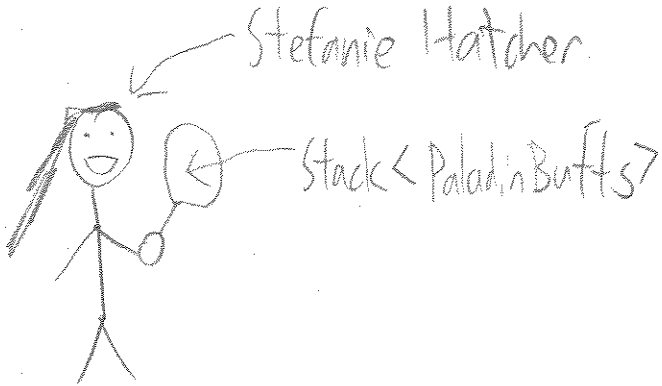 Stefanie Hatcher
Stack<PaladinBuffs>